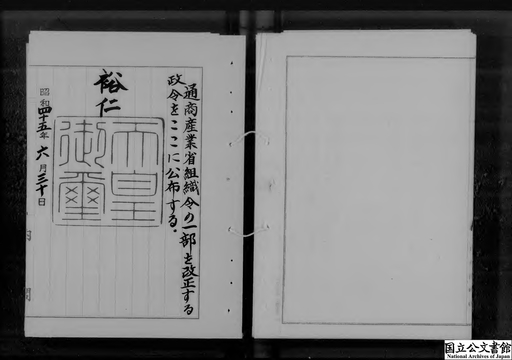 通商産業省組織令の一部を改正する
政令をここに公布する。
裕仁
天皇
御璽
昭和四十五年六月三十日
国立公文書館
National Archives of Japan